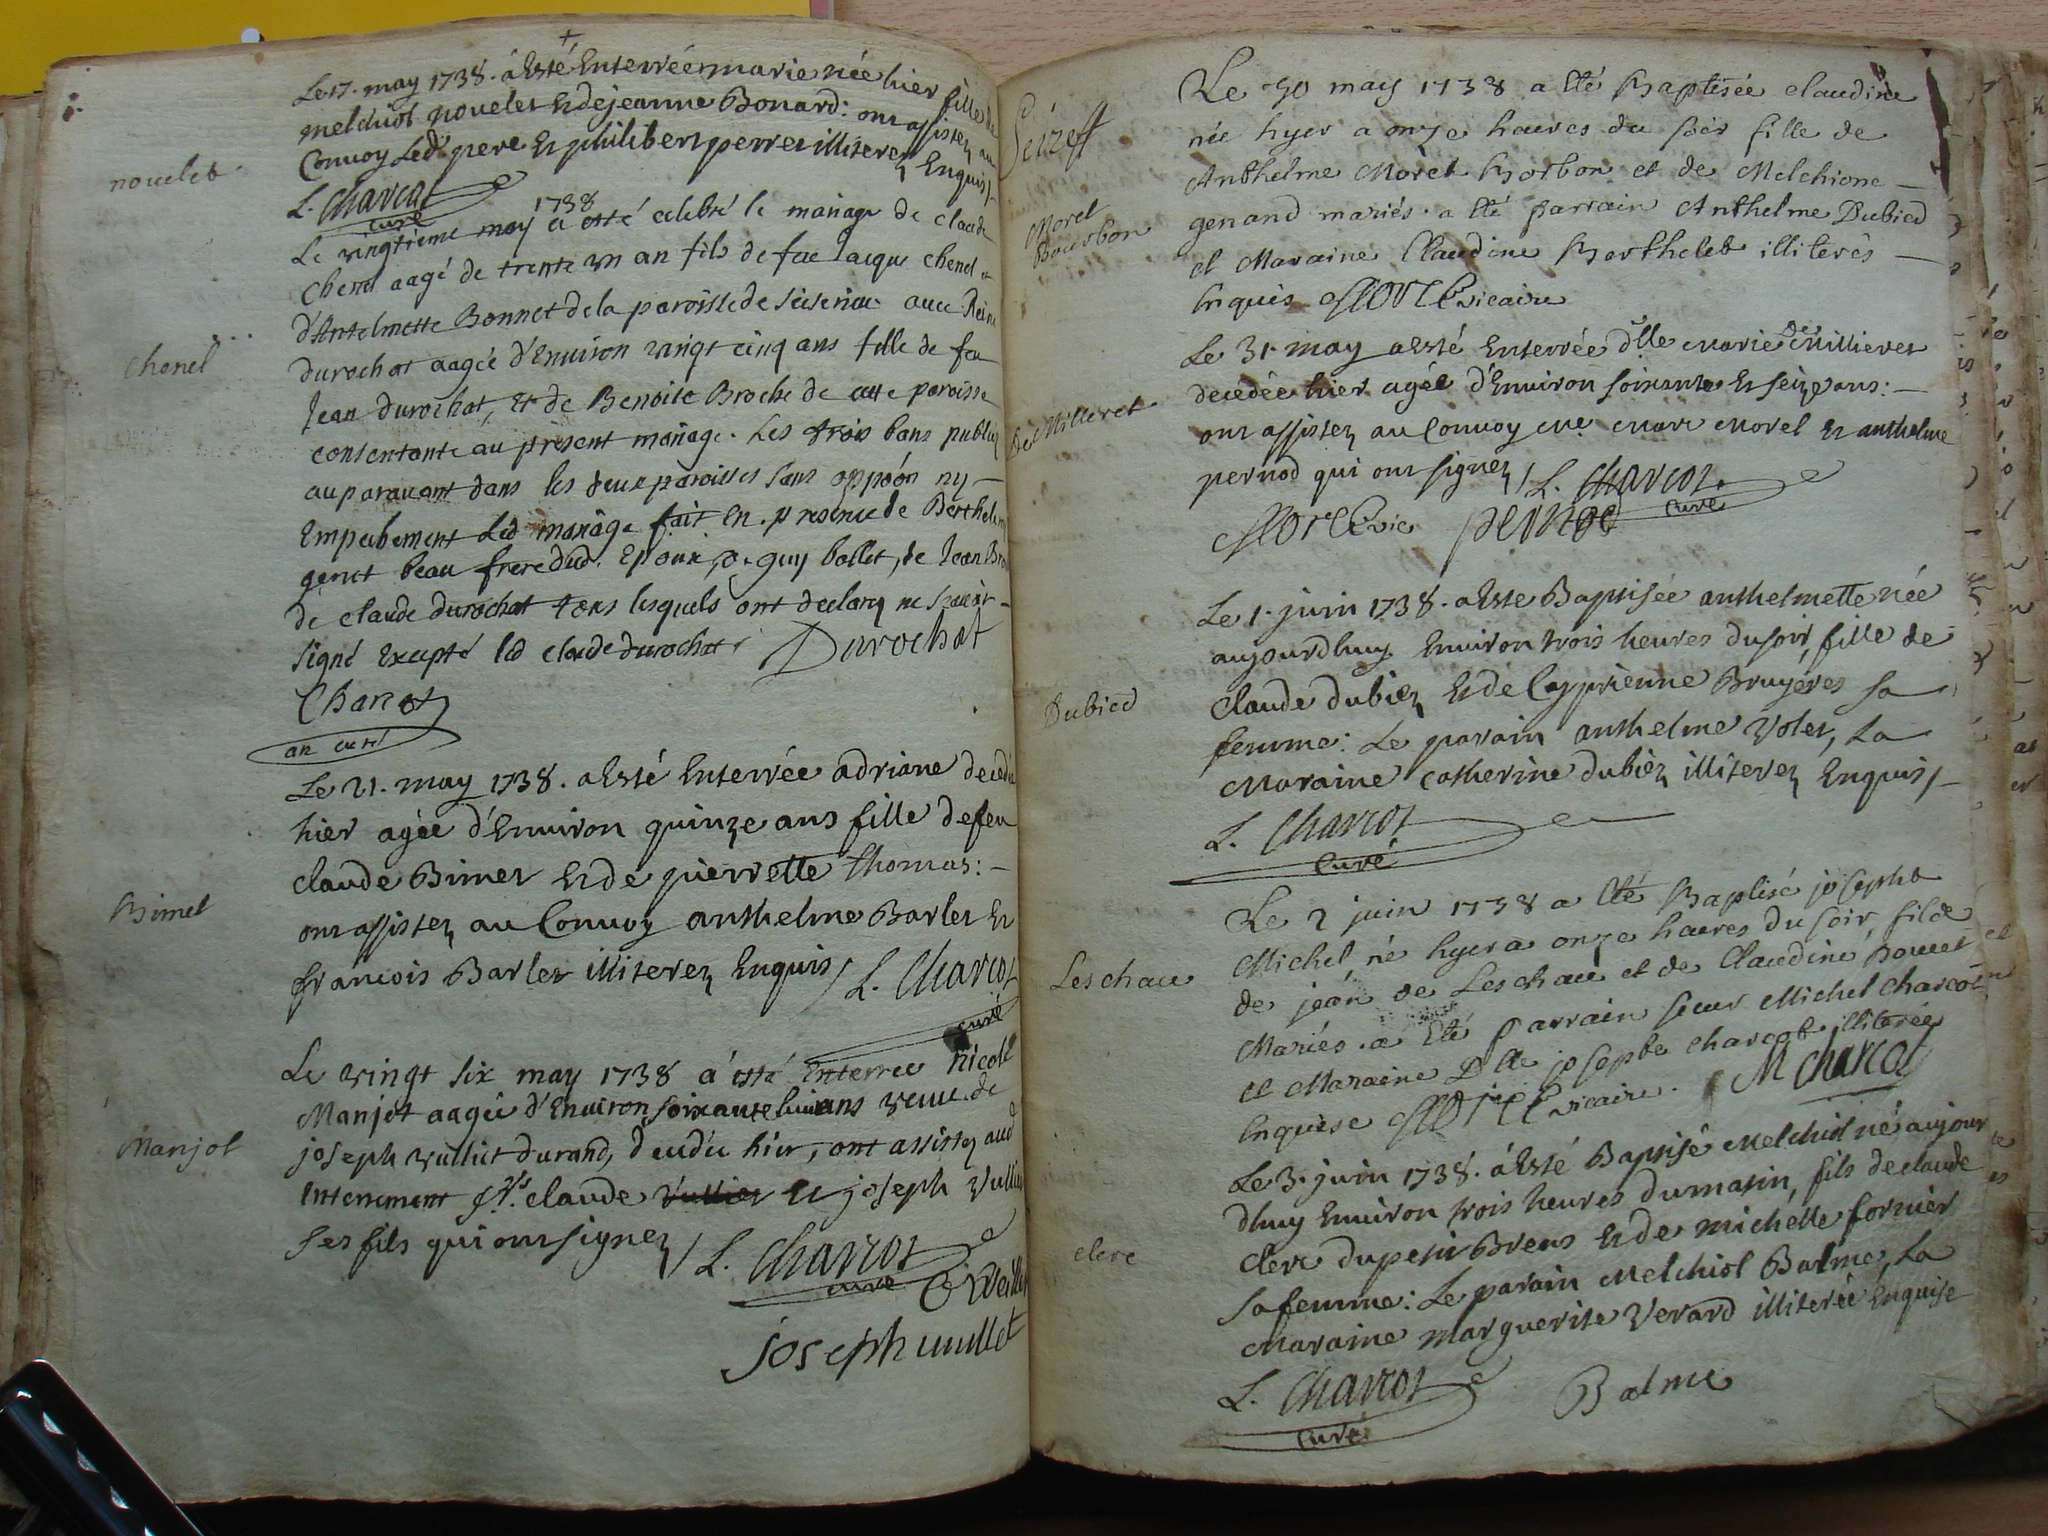 Le 17. may 1738. à Esté Enterrée marie née hier fille de
melchiol nouelet Et de jeanne Bonard: ont assistez au
Convoy Led. pere Et philibert perret illiterez Enquis /
nouelet
L. Charcot
curé
Le vingtieme may 1738 a esté celebré le mariage de claude
chenel aagé de trente un an fils de feu Jacque chenel et
d'Antelmette Bonnet de la paroisse de avec Reine
chenel
durochat aagée d'Environ vingt cinq ans fille de feu
Jean durochat, Et de Benoite Broche de cette paroisse
consentante au present mariage. Les trois bans publiez
auparavant dans les deux paroisses sans oppôon ny
Empechement Led mariage fait En presence de Berthelemy
genet beau frere dud. Epoux, de guy ballet, de Jean
de claude durochat tous lesquels ont declaré ne scavoir
signé Excepté led claude durochat / Durochat
Charcot
an curé
Le 21. may 1738. a Esté Enterrée adriane decedée
hier agée d'Environ quinze ans fille de feu
claude Bimet Et de pierrette thomas:
Bimet
ont assistez au Convoy anthelme Barlet Et
francois Barlet illiterez Enquis / L. Charcot
curé
Le vingt six may 1738 a esté Enterree Nicole
Manjot aagée d'Environ soixante huit ans veuve de
Manjot
joseph vulliet durand, decedée hier, ont assistez aud
Enterrement Srs. claude vulliet et joseph vulliet
ses fils qui ont signez / L. Charcot
curé
joseph vuillet
Seize ff
Le 30 may 1738 a Eté Baptisée claudine
née hyer a onze heures du soir fille de
Anthelme Moret Borbon et de Melchione
Moret
Bourbon
genand mariés. a Eté parrain Anthelme Dubied
et Maraine Claudine Berthelet illiterés
Enquis Morel vicaire
Le 31. may a Esté Enterrée dlle marie de Millieret
decedée hier agée d'Environ soixante Et seize ans:
De Milleret
ont assistez au Convoy Mre Marc Morel Et anthelme
pernod qui ont signez / L. Charcot
curé
Morel vic pernod
Le 1. juin 1738. a Esté Baptisée anthelmette née
aujourdhuy Environ trois heures du soir, fille de
Claude dubiez Et de Cyprienne Bruyéres sa
Dubied
femme: Le parain anthelme Volet, La
Maraine catherine dubiez illiterez Enquis /
L. Charcot
Curé
Le 2 juin 1738 a Eté Baptisé josepha
Michel né hyer a onze heures du soir, fil de
de jean de Leschaue et de Claudine Pouet
Leschaue
Mariés. a Eté parrain sieur Michel charcot
et Maraine Dlle josepte charcot illiterée
Enquise Morel vicaire. M Charcot
Le 3. juin 1738. à Esté Baptisé Melchiol né aujour
dhuy Environ trois heures du matin, fils de claude
clerc du petit Brens Et de michelle fornier
clerc
sa femme: Le parain Melchiol Balme, La
Maraine marguerite Verard illiterée Enquise
L. Charcot Balme
Curé